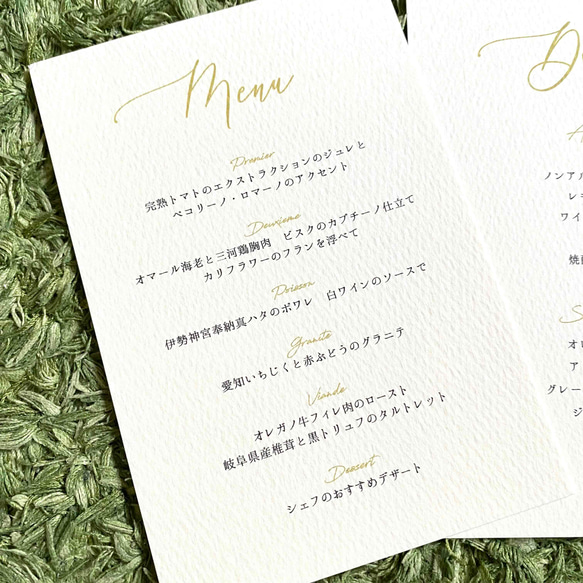 Menu
Premier
完熟トマトのエクストラクションのジュレと
ペコリーノ・ロマーノのアクセント
Deuxieme
オマール海老と三河鶏胸肉 ビスクのカプチーノ仕立て
カリフラワーのフランを浮べて
Poisson
伊勢神宮奉納真ハタのポワレ 白ワインのソースで
Granite
愛知いちじくと赤ぶどうのグラニテ
Viande
オレガノ牛フィレ肉のロースト
岐阜県産椎茸と黒トリュフのタルトレット
Dessert
シェフのおすすめデザート
ノンアル
レ
ワイ
焼酎
S
オレ
ア
グレー
ジ